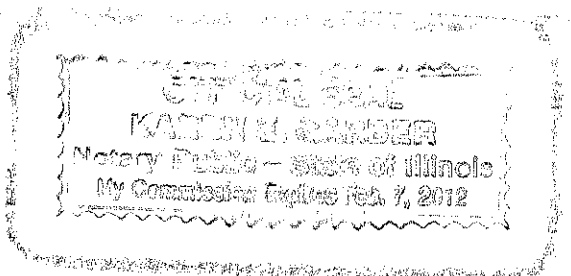 OFFICIAL SEAL
KAREN
Notary Public - State of Illinois
My Commission Expires Feb. 7, 2012